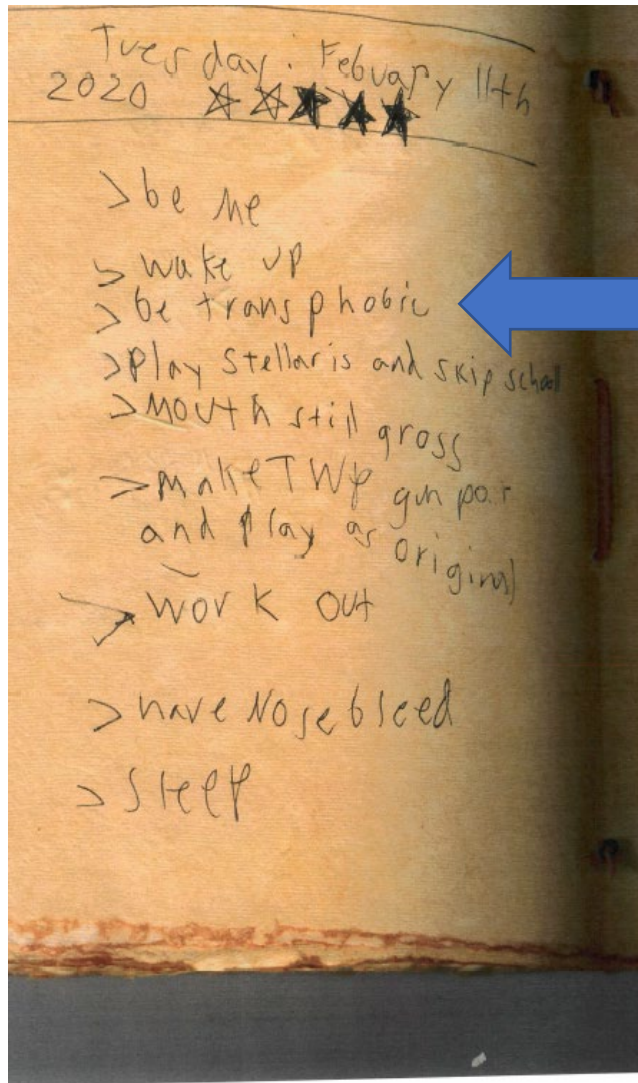 Tuesday. Febuary 11th
2020
>be me
>wake up
>be transphobic
>play Stellaris and skip school
>mouth still gross
>make TWP gun
and play as original
>work out
>have Nosebleed
>sleep